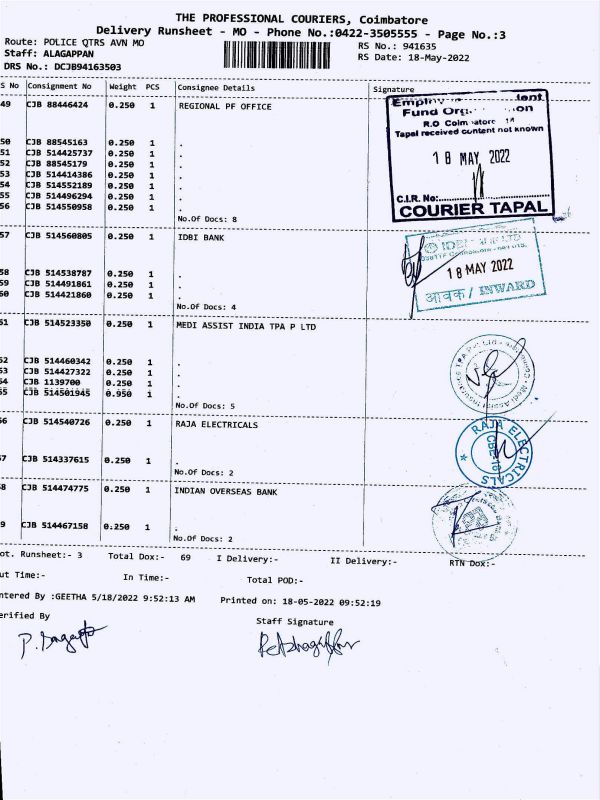 THE PROFESSIONAL COURIERS, Coimbatore
Delivery Runsheet - MO - Phone No.:0422-3505555 - Page No.:3
Route: POLICE QTRS AVN MO
RS No.: 941635
Staff: ALAGAPPAN
RS Date: 18-May-2022
DRS No.: DCJB94163503
S No Consignment No Weight PCS Consignee Details Signature
49 CJB 88446424 0.250 1 REGIONAL PF OFFICE
50 CJB 88545163 0.250 1 .
51 CJB 514425737 0.250 1 .
52 CJB 88545179 0.250 1 .
53 CJB 514414386 0.250 1 .
54 CJB 514552189 0.250 1 .
55 CJB 514496294 0.250 1 .
56 CJB 514550958 0.250 1 .
No.Of Docs: 8
Fund
R.O Coim
Tapal received content not known
18 MAY 2022
C.I.R. No:
COURIER TAPAL
57 CJB 514560805 0.250 1 IDBI BANK
58 CJB 514538787 0.250 1 .
59 CJB 514491861 0.250 1 .
60 CJB 514421860 0.250 1 .
No.Of Docs: 4
18 MAY 2022
आवक / INWARD
61 CJB 514523350 0.250 1 MEDI ASSIST INDIA TPA P LTD
52 CJB 514460342 0.250 1 .
53 CJB 514427322 0.250 1 .
54 CJB 1139700 0.250 1 .
55 CJB 514501945 0.950 1 .
No.Of Docs: 5
56 CJB 514540726 0.250 1 RAJA ELECTRICALS
57 CJB 514337615 0.250 1 .
No.Of Docs: 2
RAJA ELECTRICALS
58 CJB 514474775 0.250 1 INDIAN OVERSEAS BANK
9 CJB 514467158 0.250 1 .
No.Of Docs: 2
ot. Runsheet:- 3 Total Dox:- 69 I Delivery:- II Delivery:- RTN Dox:-
ut Time:- In Time:- Total POD:-
ntered By :GEETHA 5/18/2022 9:52:13 AM Printed on: 18-05-2022 09:52:19
erified By
Staff Signature